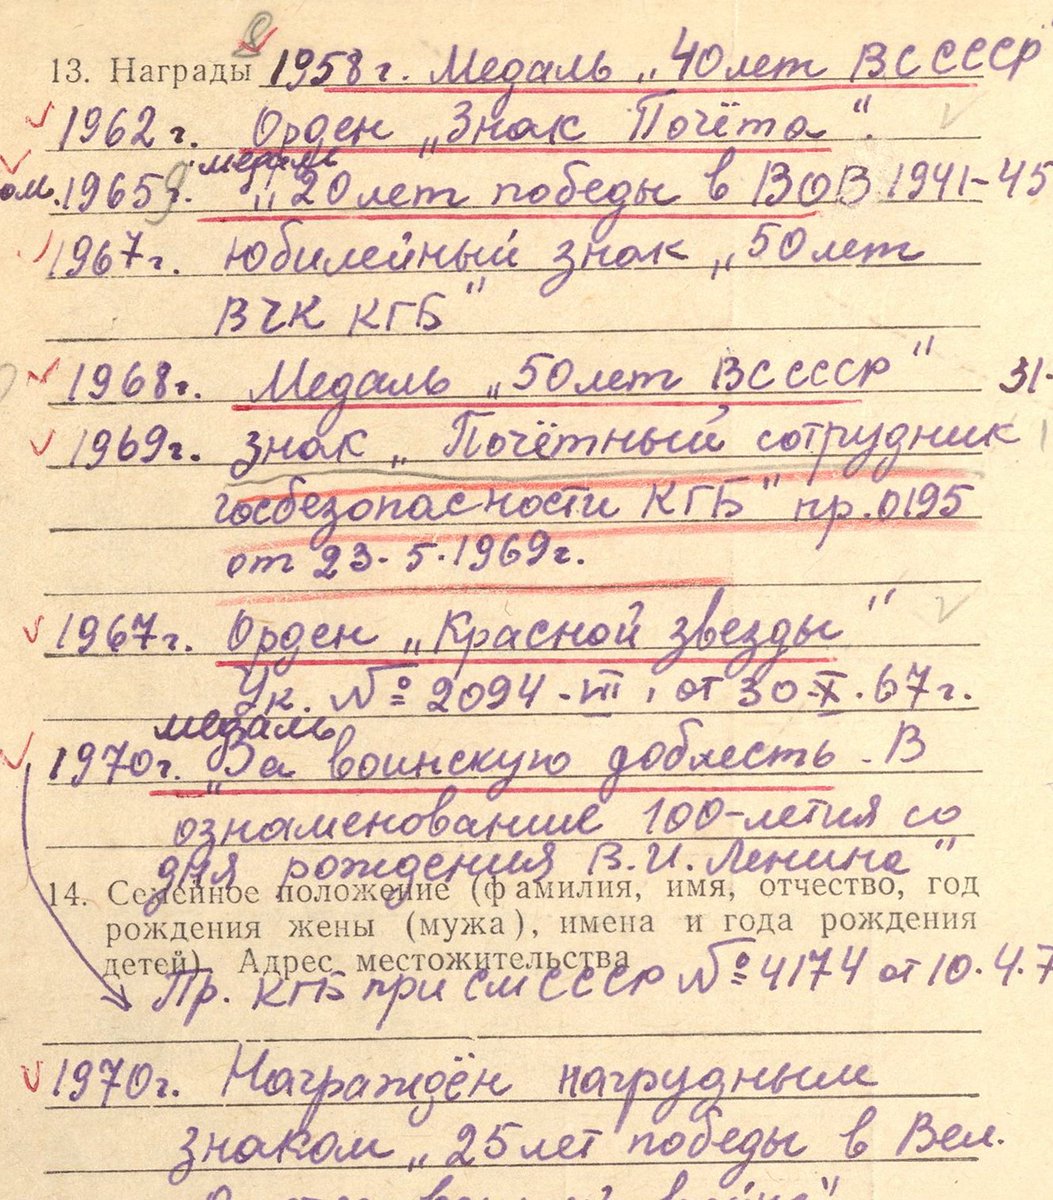 13. Награды 1958г. Медаль „40 лет ВС СССР
1962г. Орден „Знак Почёта".
медаль
ом. 1965г. „20 лет победы в ВОВ 1941-45
1967г. юбилейный знак „50 лет
ВЧК КГБ"
1968г. Медаль „50 лет ВС СССР" 31-
1969г. знак „Почётный сотрудник
госбезопасности КГБ" пр. 0195
от 23.5.1969г.
1967г. Орден „Красной звезды"
Ук. № 2094-VII, от 30.X.67г.
медаль
1970г. „За воинскую доблесть. В
ознаменование 100-летия со
дня рождения В.И. Ленина"
14. Семейное положение (фамилия, имя, отчество, год
рождения жены (мужа), имена и года рождения
детей). Адрес местожительства
Пр. КГБ при СМ СССР № 4174 от 10.4.7
1970г. Награждён нагрудным
знаком „25 лет победы в Вел.